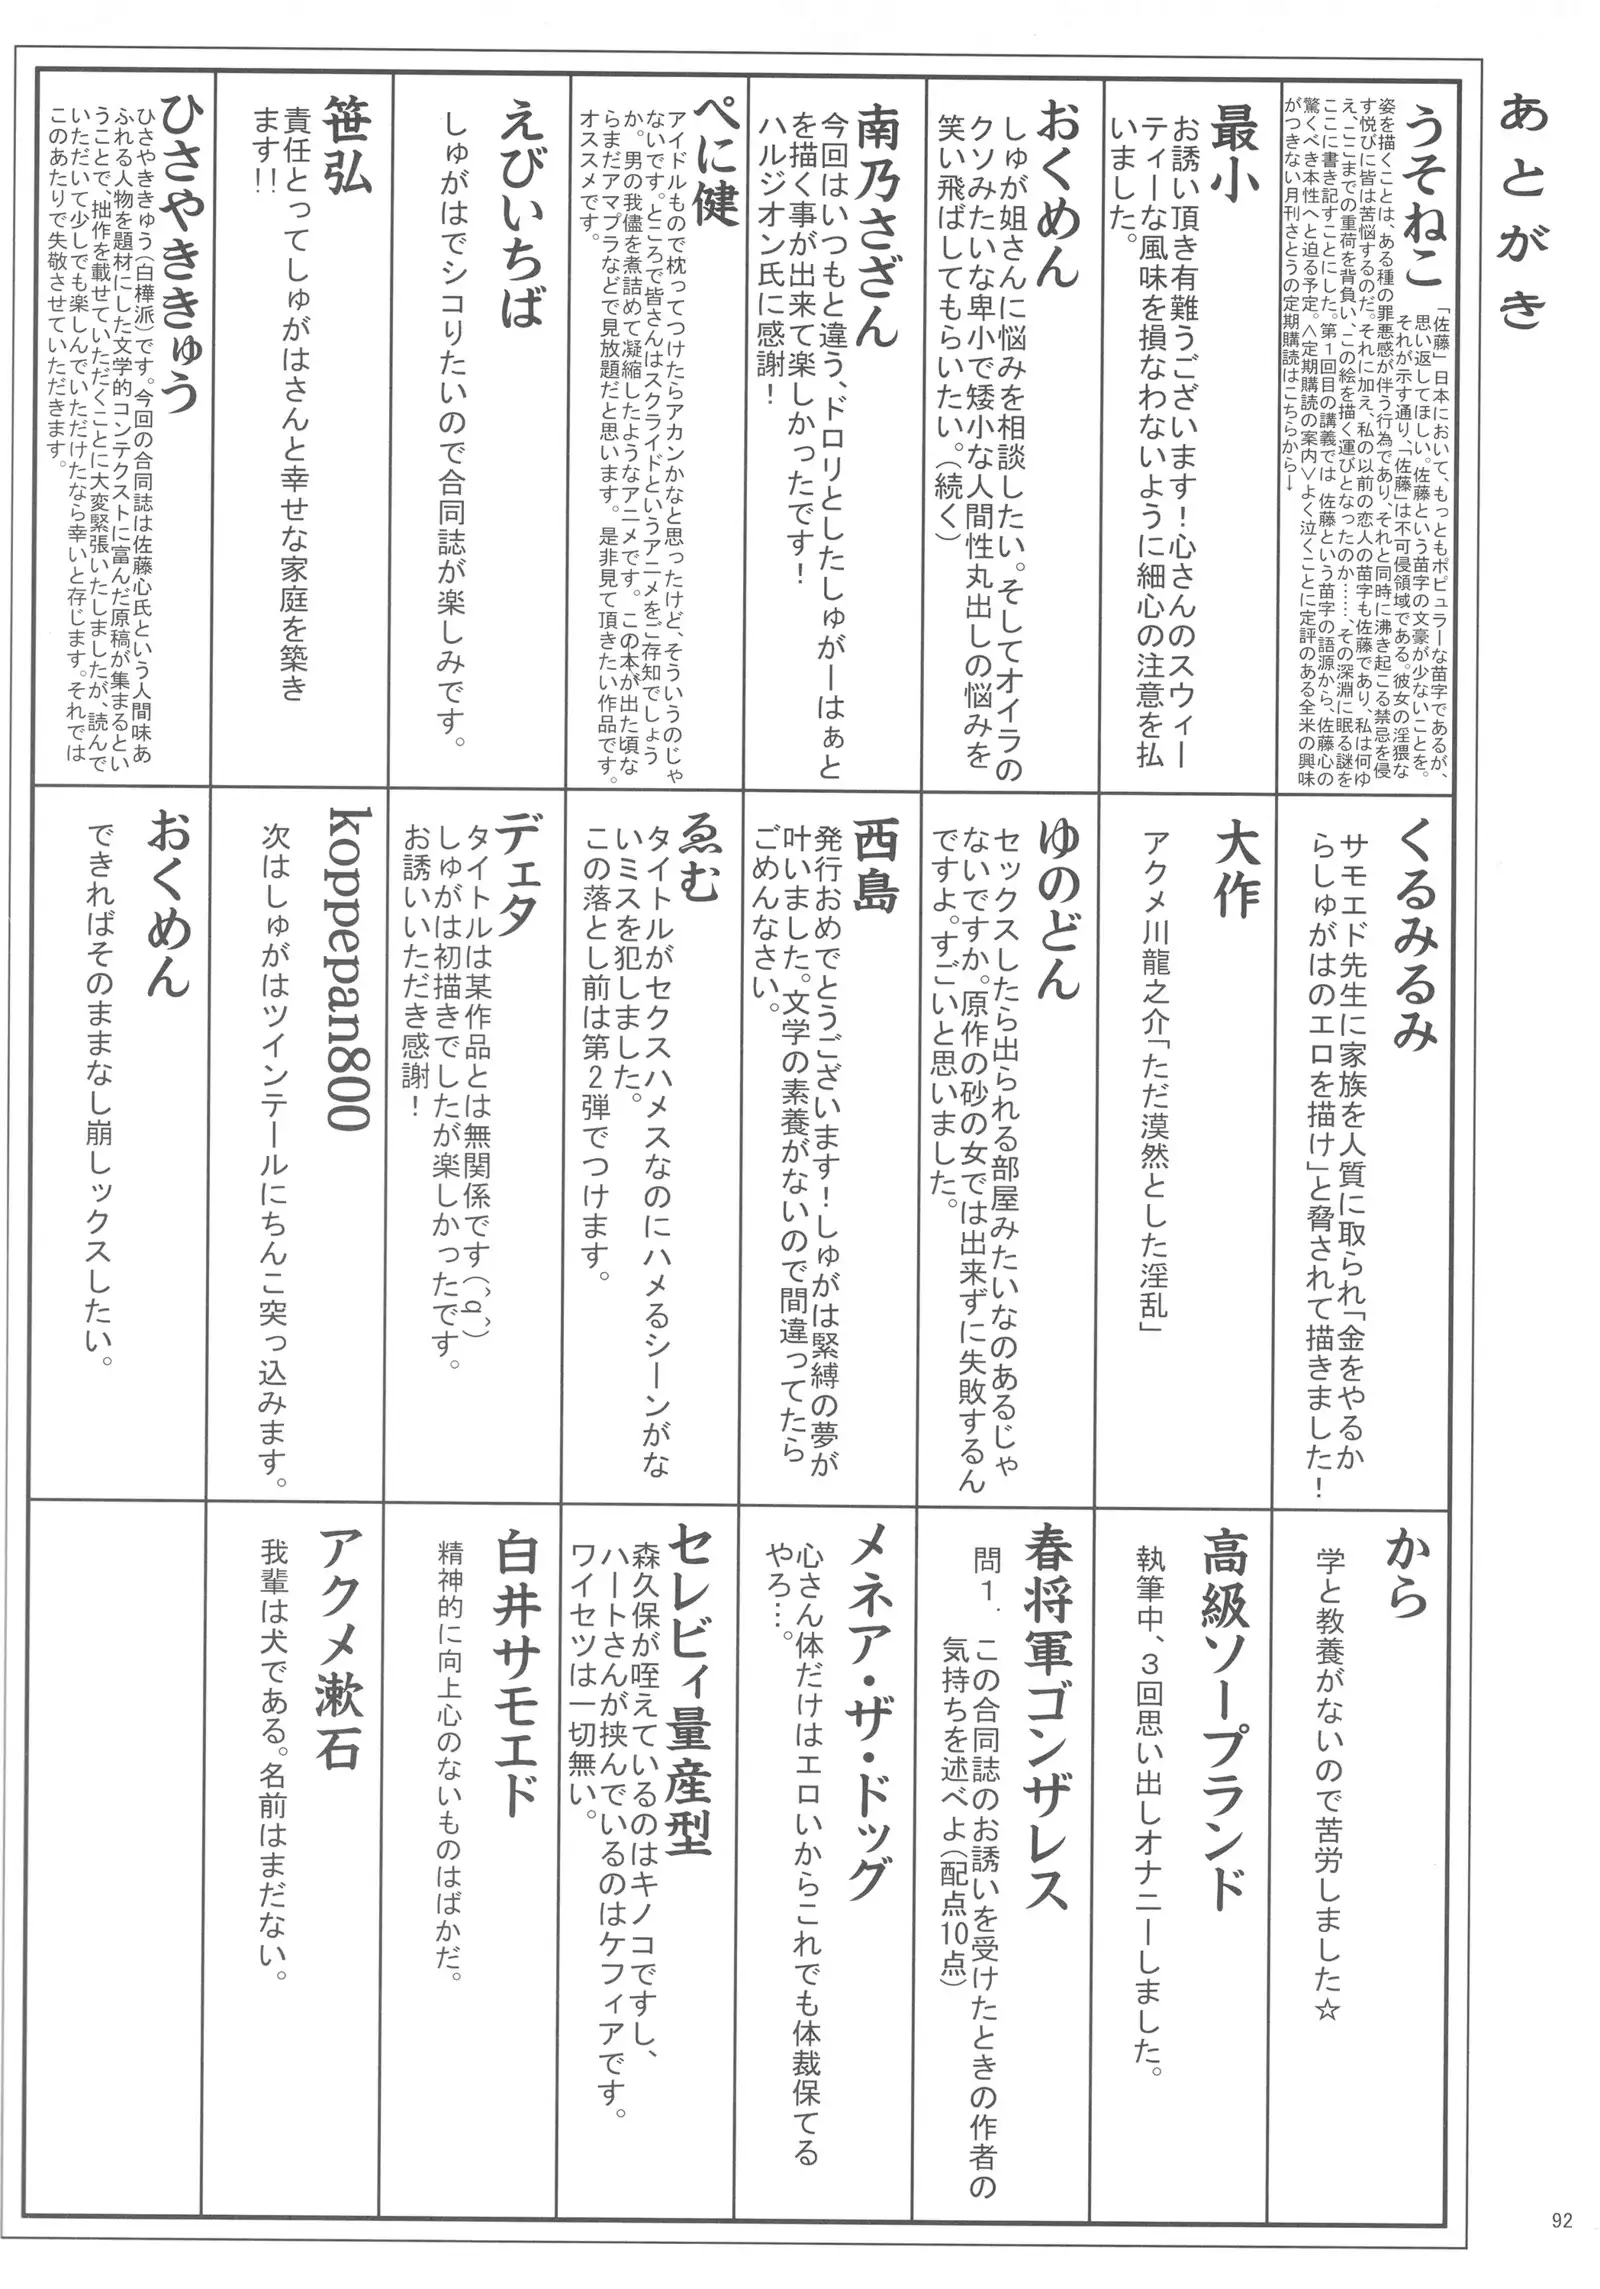 あとがき
うそねこ
「佐藤」日本において、もっともポピュラーな苗字であるが、
思い返してほしい。佐藤という苗字の文豪が少ないことを。
それが示す通り、「佐藤」は不可侵領域である。彼女の淫猥な
姿を描くことは、ある種の罪悪感が伴う行為であり、それと同時に沸き起こる禁忌を侵
す悦びに皆は苦悩するのだ。それに加え、私の以前の恋人の苗字も佐藤であり、私は何ゆ
え、ここまでの重荷を背負い、この絵を描く運びとなったのか……、その深淵に眠る謎を
ここに書き記すことにした。第1回目の講義では 佐藤という苗字の語源から、佐藤心の
驚くべき本性へと迫る予定。＜定期購読の案内＞よく泣くことに定評のある全米の興味
がつきない月刊さとうの定期購読はこちらから→
最小
お誘い頂き有難うございます！心さんのスウィー
ティーな風味を損なわないように細心の注意を払
いました。
おくめん
しゅが姐さんに悩みを相談したい。そしてオイラの
クソみたいな卑小で矮小な人間性丸出しの悩みを
笑い飛ばしてもらいたい。(続く)
南乃さざん
今回はいつもと違う、ドロリとしたしゅがーはぁと
を描く事が出来て楽しかったです！
ハルジオン氏に感謝！
べに健
アイドルもので枕ってつけたらアカンかなと思ったけど、そういうのじゃ
ないです。ところで皆さんはスクライドというアニメをご存知でしょう
か。男の我儘を煮詰めて凝縮したようなアニメです。この本が出た頃な
らまだアマプラなどで見放題だと思います。是非見て頂きたい作品です。
オススメです。
えびいちば
しゅがはでシコりたいので合同誌が楽しみです。
笹弘
責任とってしゅがはさんと幸せな家庭を築き
ます!!
ひさやききゅう
ひさやききゅう(白樺派)です。今回の合同誌は佐藤心氏という人間味あ
ふれる人物を題材にした文学的コンテクストに富んだ原稿が集まるとい
うことで、拙作を載せていただくことに大変緊張いたしましたが、読んで
いただいて少しでも楽しんでいただけたなら幸いと存じます。それでは
このあたりで失敬させていただきます。
くるみるみ
サモエド先生に家族を人質に取られ「金をやるか
らしゅがはのエロを描け」と脅されて描きました！
大作
アクメ川龍之介「ただ漠然とした淫乱」
ゆのどん
セックスしたら出られる部屋みたいなのあるじゃ
ないですか。原作の砂の女では出来ずに失敗するん
ですよ。すごいと思いました。
西島
発行おめでとうございます！しゅがは緊縛の夢が
叶いました。文学の素養がないので間違ってたら
ごめんなさい。
ゑむ
タイトルがセクスハメスなのにハメるシーンがな
いミスを犯しました。
この落とし前は第2弾でつけます。
デェタ
タイトルは某作品とは無関係です(^q^)
しゅがは初描きでしたが楽しかったです。
お誘いいただき感謝！
koppepan800
次はしゅがはツインテールにちんこ突っ込みます。
おくめん
できればそのままなし崩しックスしたい。
から
学と教養がないので苦労しました☆
高級ソープランド
執筆中、3回思い出しオナニーしました。
春将軍ゴンザレス
問1. この合同誌のお誘いを受けたときの作者の
気持ちを述べよ(配点10点)
メネア・ザ・ドッグ
心さん体だけはエロいからこれでも体裁保てる
やろ…。
セレビィ量産型
森久保が咥えているのはキノコですし、
ハートさんが挟んでいるのはケフィアです。
ワイセツは一切無い。
白井サモエド
精神的に向上心のないものはばかだ。
アクメ漱石
我輩は犬である。名前はまだない。
92